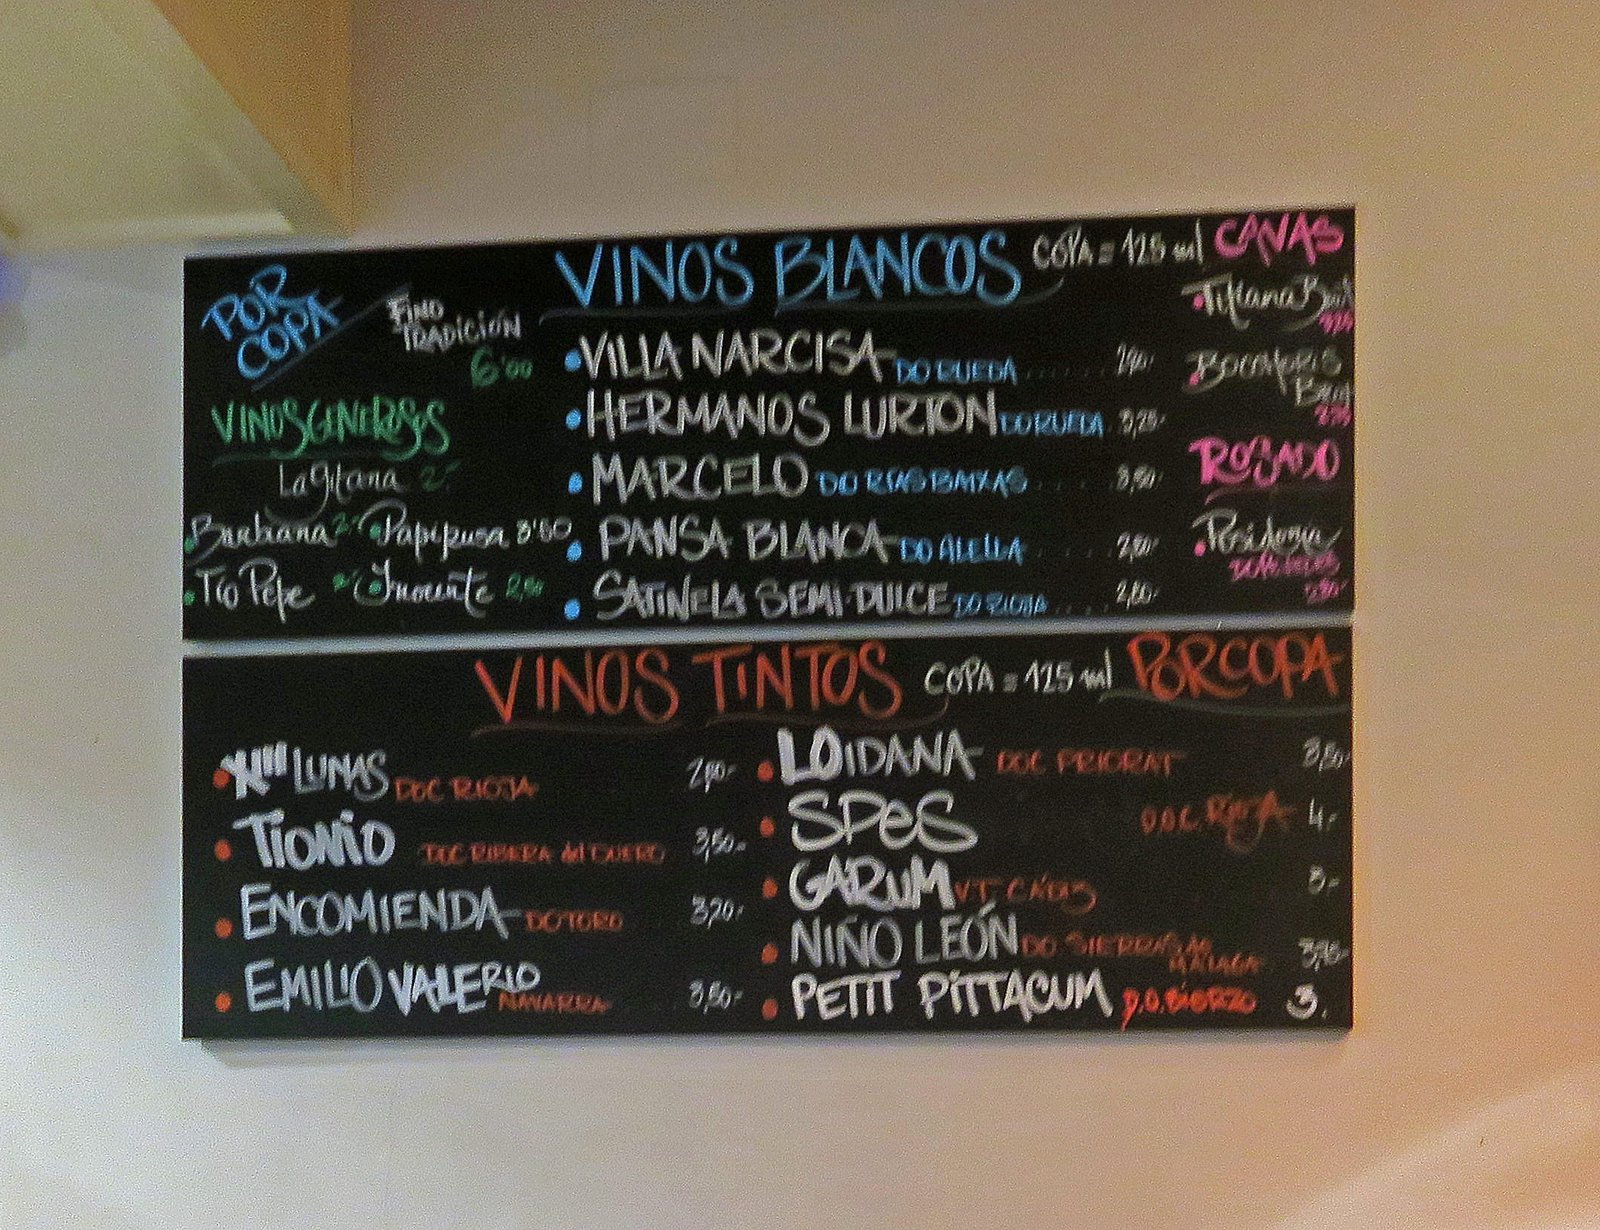 POR COPA
FINO TRADICIÓN
6'00
VINOS GENEROSOS
La Gitana 2'-
Barbiana 2'- Papirusa 3'50
Tío Pepe 2'- Inocente 2,50
VINOS BLANCOS COPA = 125 ml
VILLA NARCISA DO RUEDA
HERMANOS LURTON DO RUEDA 3,25-
MARCELO DO RIAS BAIXAS 3,50-
PANSA BLANCA DO ALELLA 2,80-
SATINELA SEMI-DULCE DO RIOJA 2,80-
CAVAS
Titiana
ROSADO
VINOS TINTOS COPA = 125 ml POR COPA
XIII LUNAS DOC RIOJA 2,80-
TIONIO DOC RIBERA del DUERO 3,50-
ENCOMIENDA DO TORO 3,20-
EMILIO VALERIO NAVARRA 3,50-
LOIDANA DOC PRIORAT 3,50-
SPES D.O.C. RIOJA 4,-
GARUM V.T. CÁDIZ 3-
NIÑO LEÓN DO SIERRAS de MÁLAGA 3,75-
PETIT PITTACUM D.O. BIERZO 3.